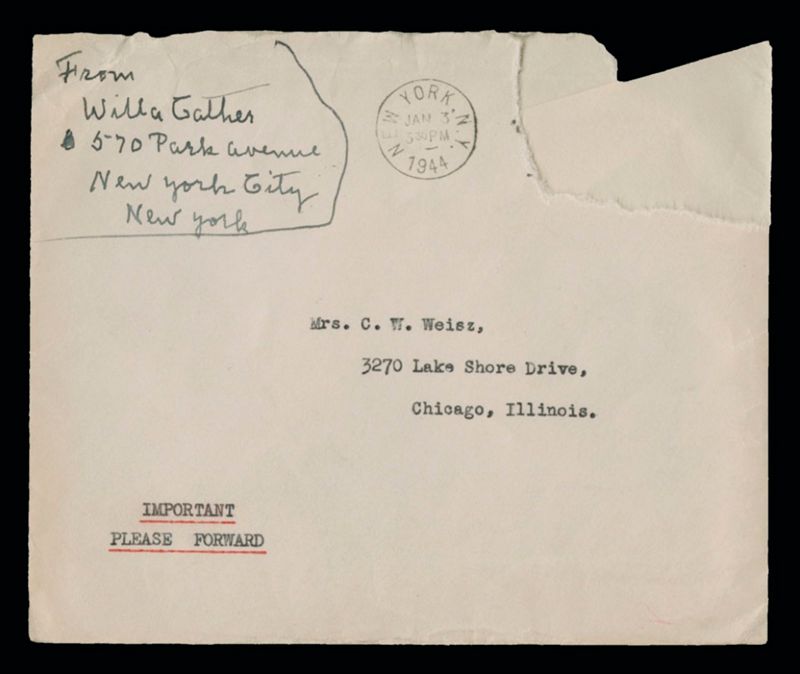 From
Willa Cather
570 Park avenue
New York City
New York
NEW YORK, N.Y.
JAN 3
3 30 PM
1944
Mrs. C. W. Weisz,
3270 Lake Shore Drive,
Chicago, Illinois.
IMPORTANT
PLEASE FORWARD